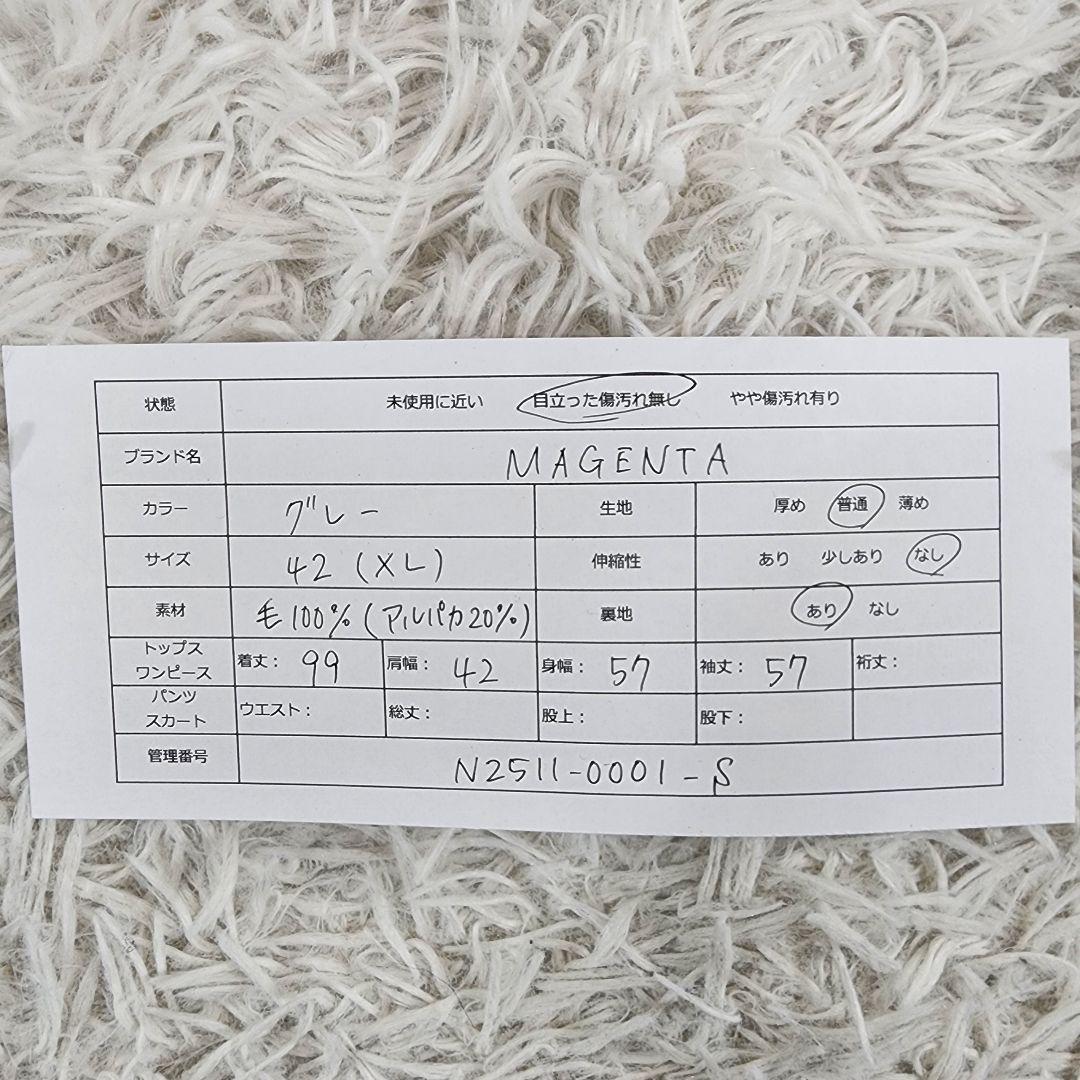 状態 未使用に近い 目立った傷汚れ無し やや傷汚れ有り
ブランド名 MAGENTA
カラー グレー 生地 厚め 普通 薄め
サイズ 42 (XL) 伸縮性 あり 少しあり なし
素材 毛100%(アルパカ20%) 裏地 あり なし
トップス
ワンピース 着丈: 99 肩幅: 42 身幅: 57 袖丈: 57 裄丈:
パンツ
スカート ウエスト: 総丈: 股上: 股下:
管理番号 N2511-0001-S